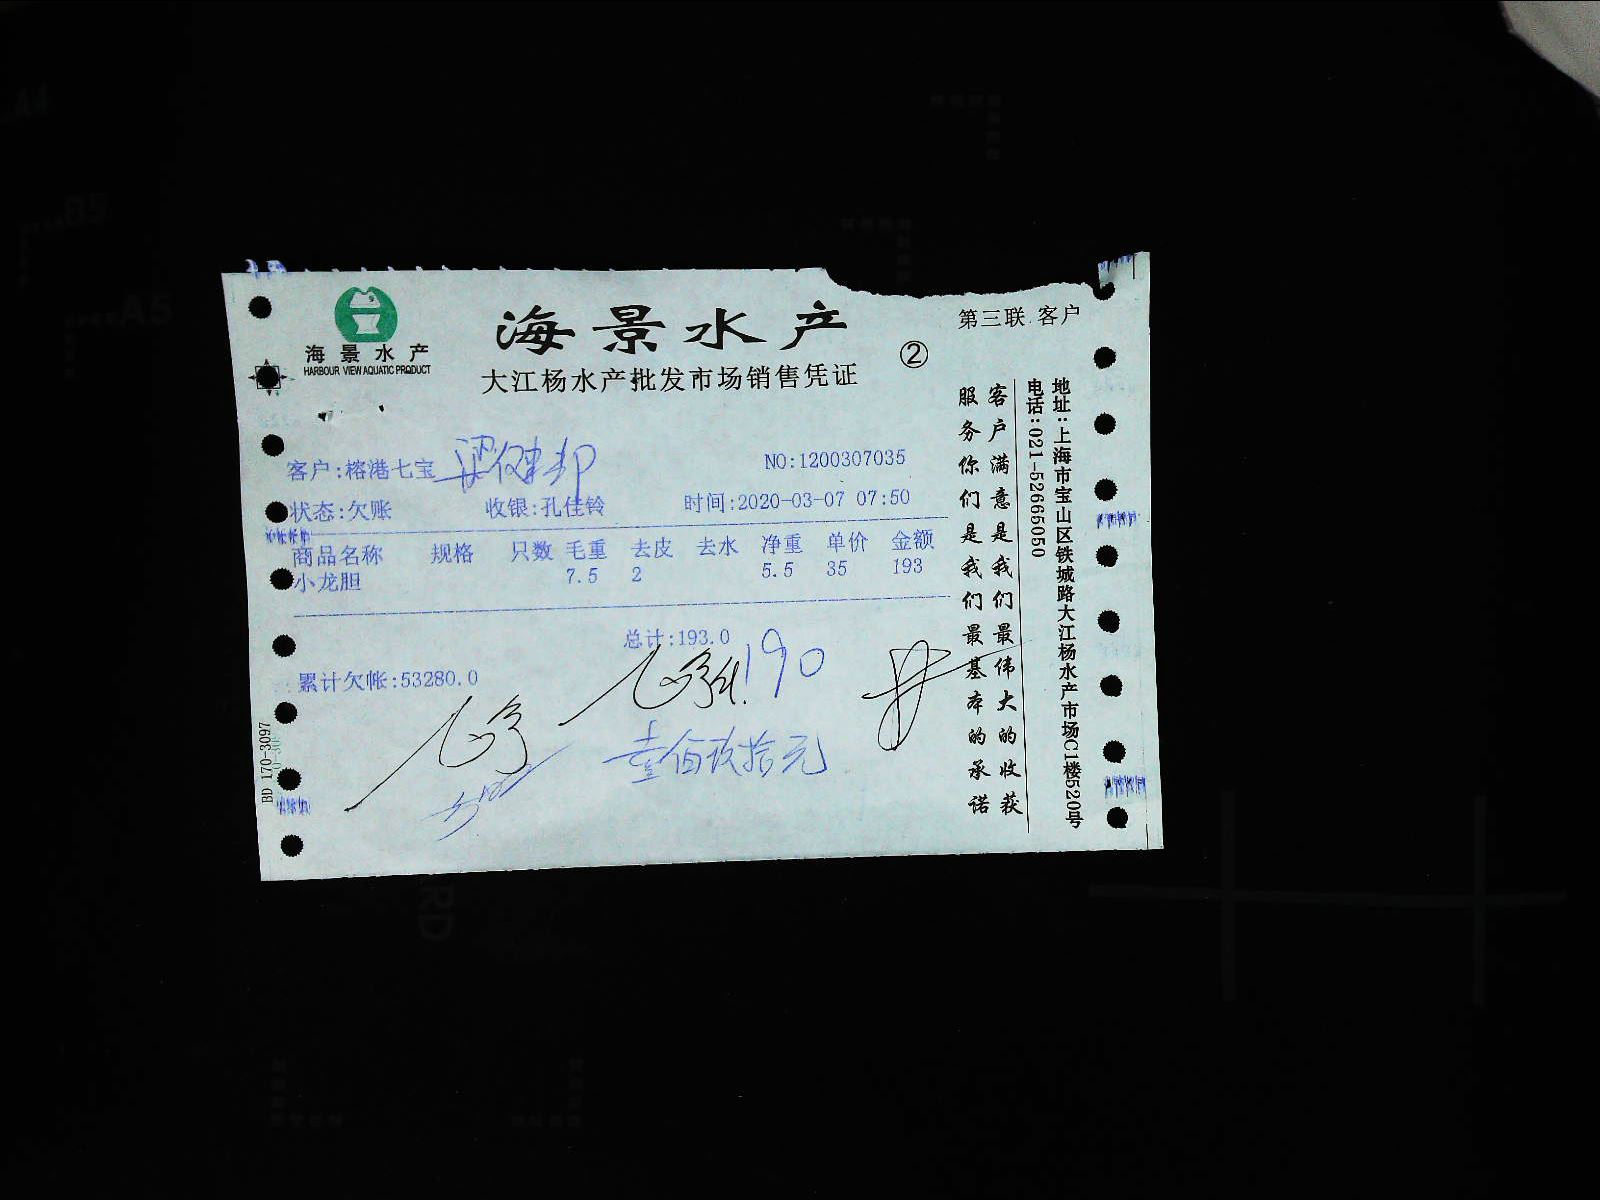 海景水产
HARBOUR VIEW AQUATIC PRODUCT
海景水产
大江杨水产批发市场销售凭证
②
第三联 客户
客户:榕港七宝 梁健邦
NO:1200307035
状态:欠账 收银:孔佳铃 时间:2020-03-07 07:50
商品名称 规格 只数 毛重 去皮 去水 净重 单价 金额
小龙胆 7.5 2 5.5 35 193
总计:193.0
190
累计欠帐:53280.0
壹佰玖拾元
客户满意是我们最伟大的收获
服务你们是我们最基本的承诺
地址:上海市宝山区铁城路大江杨水产市场C1楼520号
电话:021-52665050
BD 170-3097